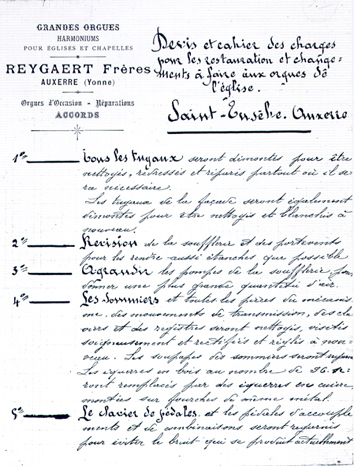 GRANDES ORGUES
HARMONIUMS
POUR ÉGLISES ET CHAPELLES
REYGAERT Frères
AUXERRE (Yonne)
Orgues d'Occasion - Réparations
ACCORDS
Devis et cahier des charges
pour les restauration et change-
ments à faire aux orgues de
l'église.
Saint-Eusèbe. Auxerre
1º Tous les tuyaux seront démontés pour être
nettoyés, redressés et réparés partout où il se
ra nécessaire.
Les tuyaux de la façade seront également
démontés pour être nettoyés et blanchis à
nouveau.
2º Révision de la soufflerie et des portevents
pour les rendre aussi étanches que possible
3º Agrandir les pompes de la soufflerie pour
donner une plus grande quantité d'air.
4º Les Sommiers et toutes les pièces du mécanis
me, des mouvements de transmission, des cla
viers et des registres seront nettoyés, visités
soigneusement et rectifiés et réglés à nou-
veau. Les soupapes des sommiers seront
Les équerres en bois au nombre de 36 se-
ront remplacés par des équerres en cuivre
montées sur fourches de même métal.
5º Le clavier de pédales et les pédales d'accouple
ments et de combinaisons seront regarnis
pour éviter le bruit qui se produit actuellement